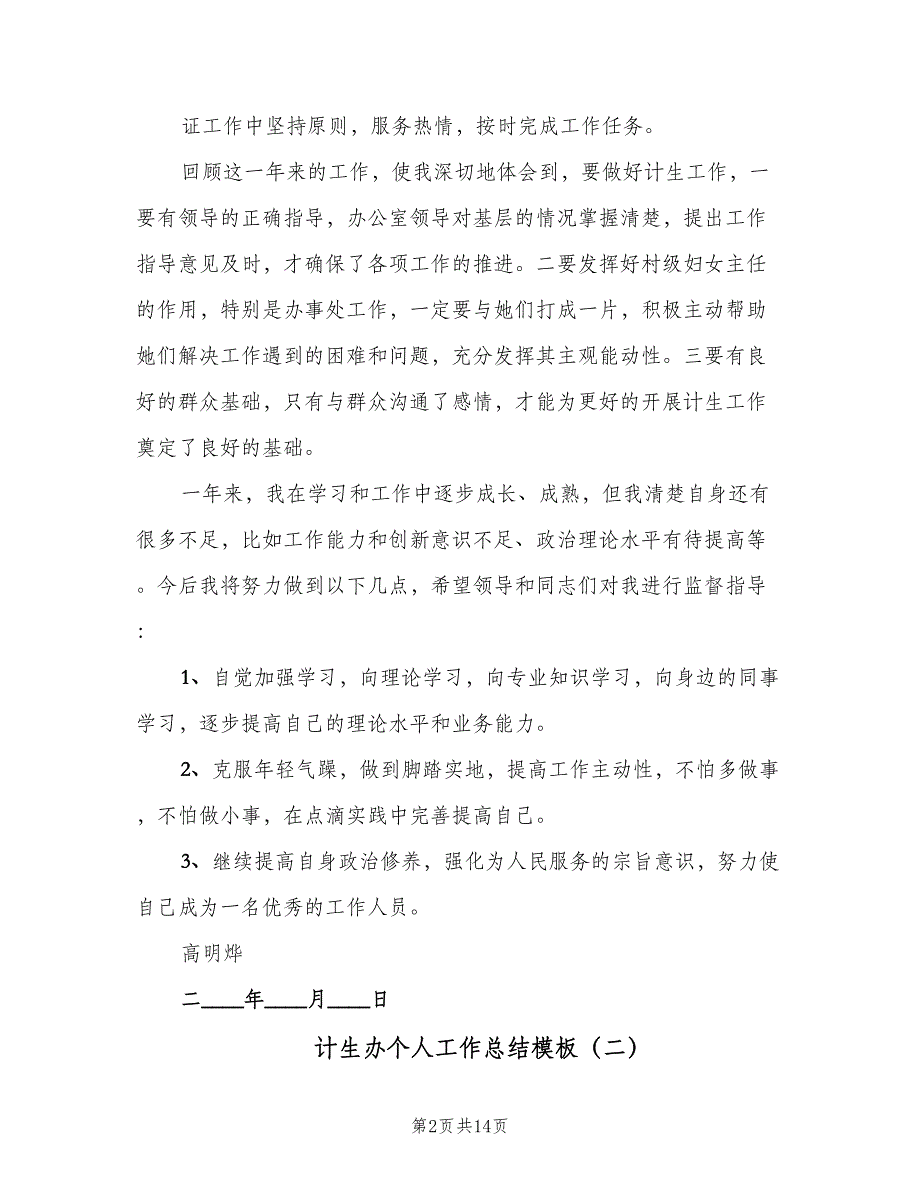 证工作中坚持原则，服务热情，按时完成工作任务。
回顾这一年来的工作，使我深切地体会到，要做好计生工作，一
要有领导的正确指导，办公室领导对基层的情况掌握清楚，提出工作
指导意见及时，才确保了各项工作的推进。二要发挥好村级妇女主任
的作用，特别是办事处工作，一定要与她们打成一片，积极主动帮助
她们解决工作遇到的困难和问题，充分发挥其主观能动性。三要有良
好的群众基础，只有与群众沟通了感情，才能为更好的开展计生工作
奠定了良好的基础。
一年来，我在学习和工作中逐步成长、成熟，但我清楚自身还有
很多不足，比如工作能力和创新意识不足、政治理论水平有待提高等
。今后我将努力做到以下几点，希望领导和同志们对我进行监督指导
：
1、自觉加强学习，向理论学习，向专业知识学习，向身边的同事
学习，逐步提高自己的理论水平和业务能力。
2、克服年轻气躁，做到脚踏实地，提高工作主动性，不怕多做事
，不怕做小事，在点滴实践中完善提高自己。
3、继续提高自身政治修养，强化为人民服务的宗旨意识，努力使
自己成为一名优秀的工作人员。
高明烨
二____年____月____日
计生办个人工作总结模板（二）
第2页共14页